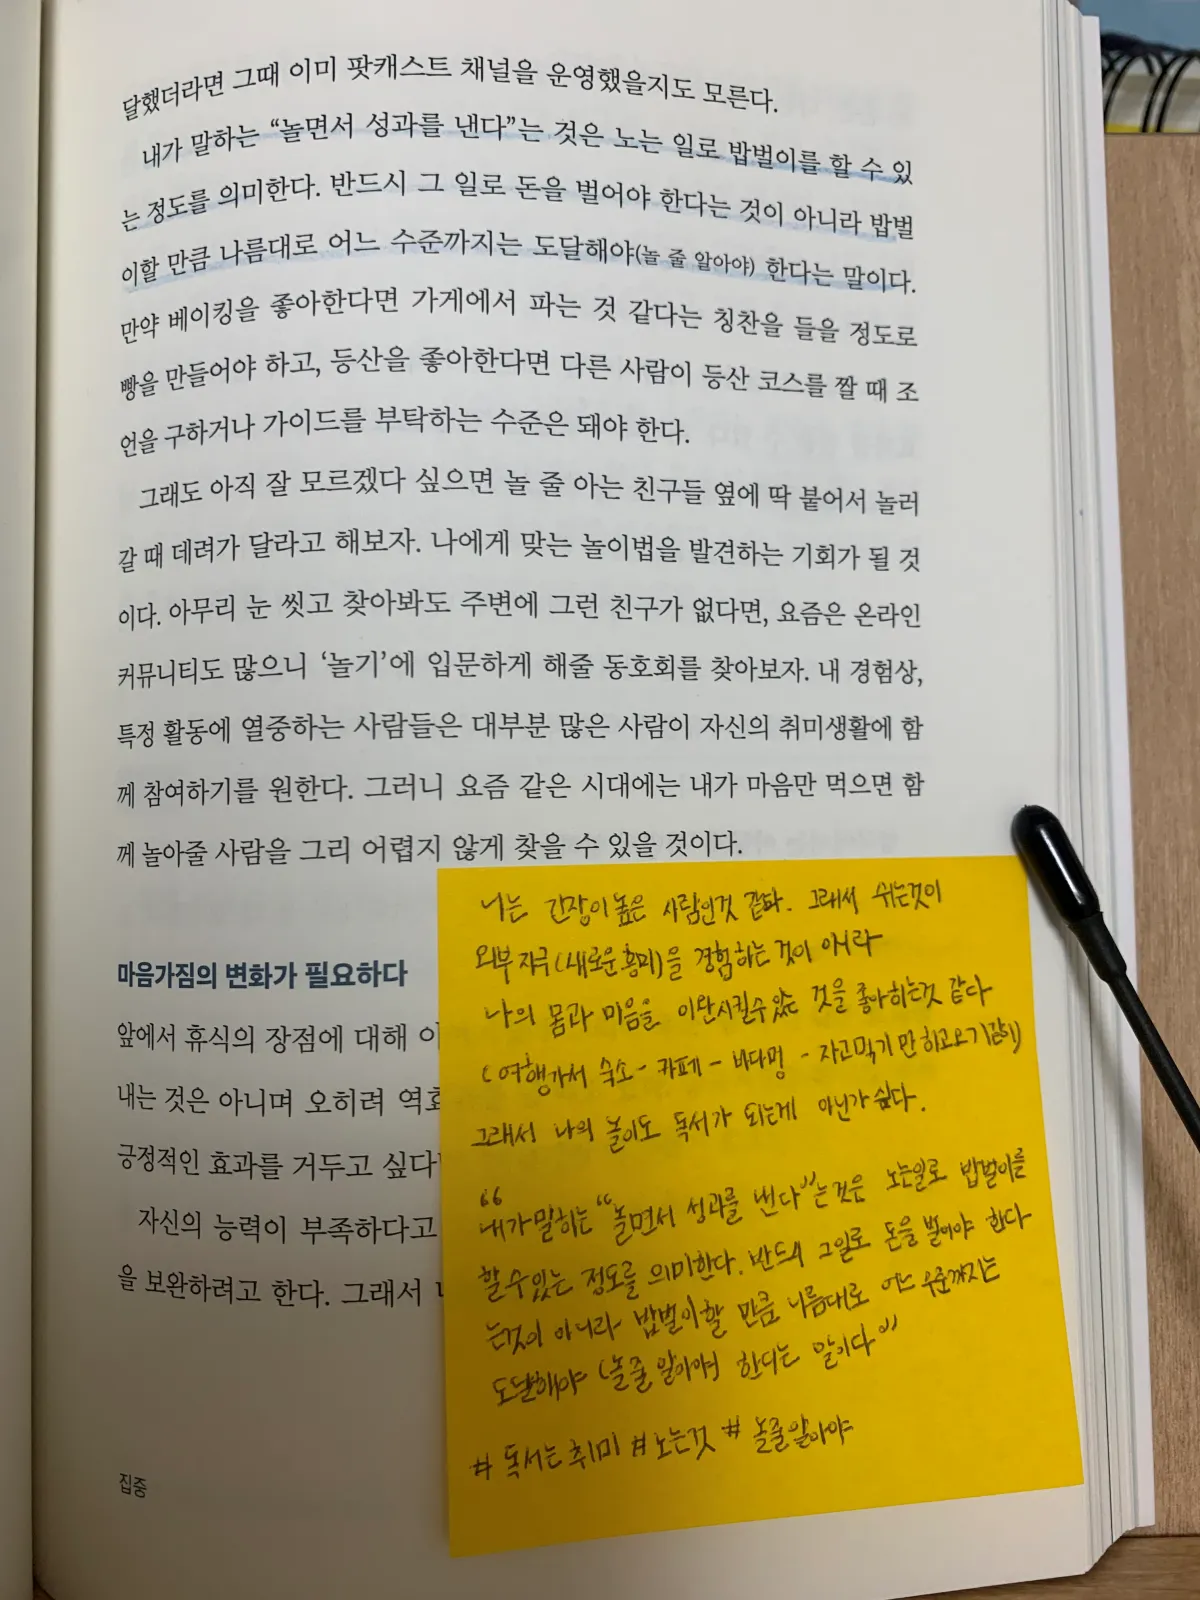 달했더라면 그때 이미 팟캐스트 채널을 운영했을지도 모른다.
내가 말하는 “놀면서 성과를 낸다”는 것은 노는 일로 밥벌이를 할 수 있
는 정도를 의미한다. 반드시 그 일로 돈을 벌어야 한다는 것이 아니라 밥벌
이할 만큼 나름대로 어느 수준까지는 도달해야(놀 줄 알아야) 한다는 말이다.
만약 베이킹을 좋아한다면 가게에서 파는 것 같다는 칭찬을 들을 정도로
빵을 만들어야 하고, 등산을 좋아한다면 다른 사람이 등산 코스를 짤 때 조
언을 구하거나 가이드를 부탁하는 수준은 돼야 한다.
그래도 아직 잘 모르겠다 싶으면 놀 줄 아는 친구들 옆에 딱 붙어서 놀러
갈 때 데려가 달라고 해보자. 나에게 맞는 놀이법을 발견하는 기회가 될 것
이다. 아무리 눈 씻고 찾아봐도 주변에 그런 친구가 없다면, 요즘은 온라인
커뮤니티도 많으니 ‘놀기’에 입문하게 해줄 동호회를 찾아보자. 내 경험상,
특정 활동에 열중하는 사람들은 대부분 많은 사람이 자신의 취미생활에 함
께 참여하기를 원한다. 그러니 요즘 같은 시대에는 내가 마음만 먹으면 함
께 놀아줄 사람을 그리 어렵지 않게 찾을 수 있을 것이다.
마음가짐의 변화가 필요하다
앞에서 휴식의 장점에 대해 이
내는 것은 아니며 오히려 역효
긍정적인 효과를 거두고 싶다
자신의 능력이 부족하다고
을 보완하려고 한다. 그래서
집중
나는 긴장이 높은 사람인것 같다. 그래서 쉬는것이
외부자극(새로운흥미)을 경험하는 것이 아니라
나의 몸과 마음을 이완시킬수있는 것을 좋아하는것 같다
(여행가서 숙소 - 카페 - 바다멍 - 자고먹기만하고오기같이)
그래서 나의 놀이도 독서가 되는게 아닌가싶다.
“내가말하는 “놀면서 성과를 낸다”는것은 노는일로 밥벌이를
할수있는 정도를 의미한다. 반드시 그일로 돈을벌어야 한다
는것이 아니라 밥벌이할 만큼 나름대로 어느 수준까지는
도달해야 (놀줄알아야) 한다는 말이다”
# 독서는취미 # 노는것 # 놀줄알아야